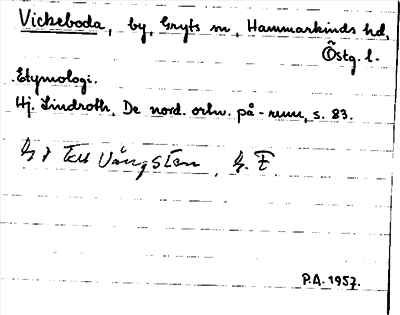 Vickeboda, by, Gryts sn, Hammarkinds hd,
Östg. l.
Etymologi.
Hj. Lindroth, De nord. ortn. på -rum, s. 83.
Vångsten
P.A. 1957.